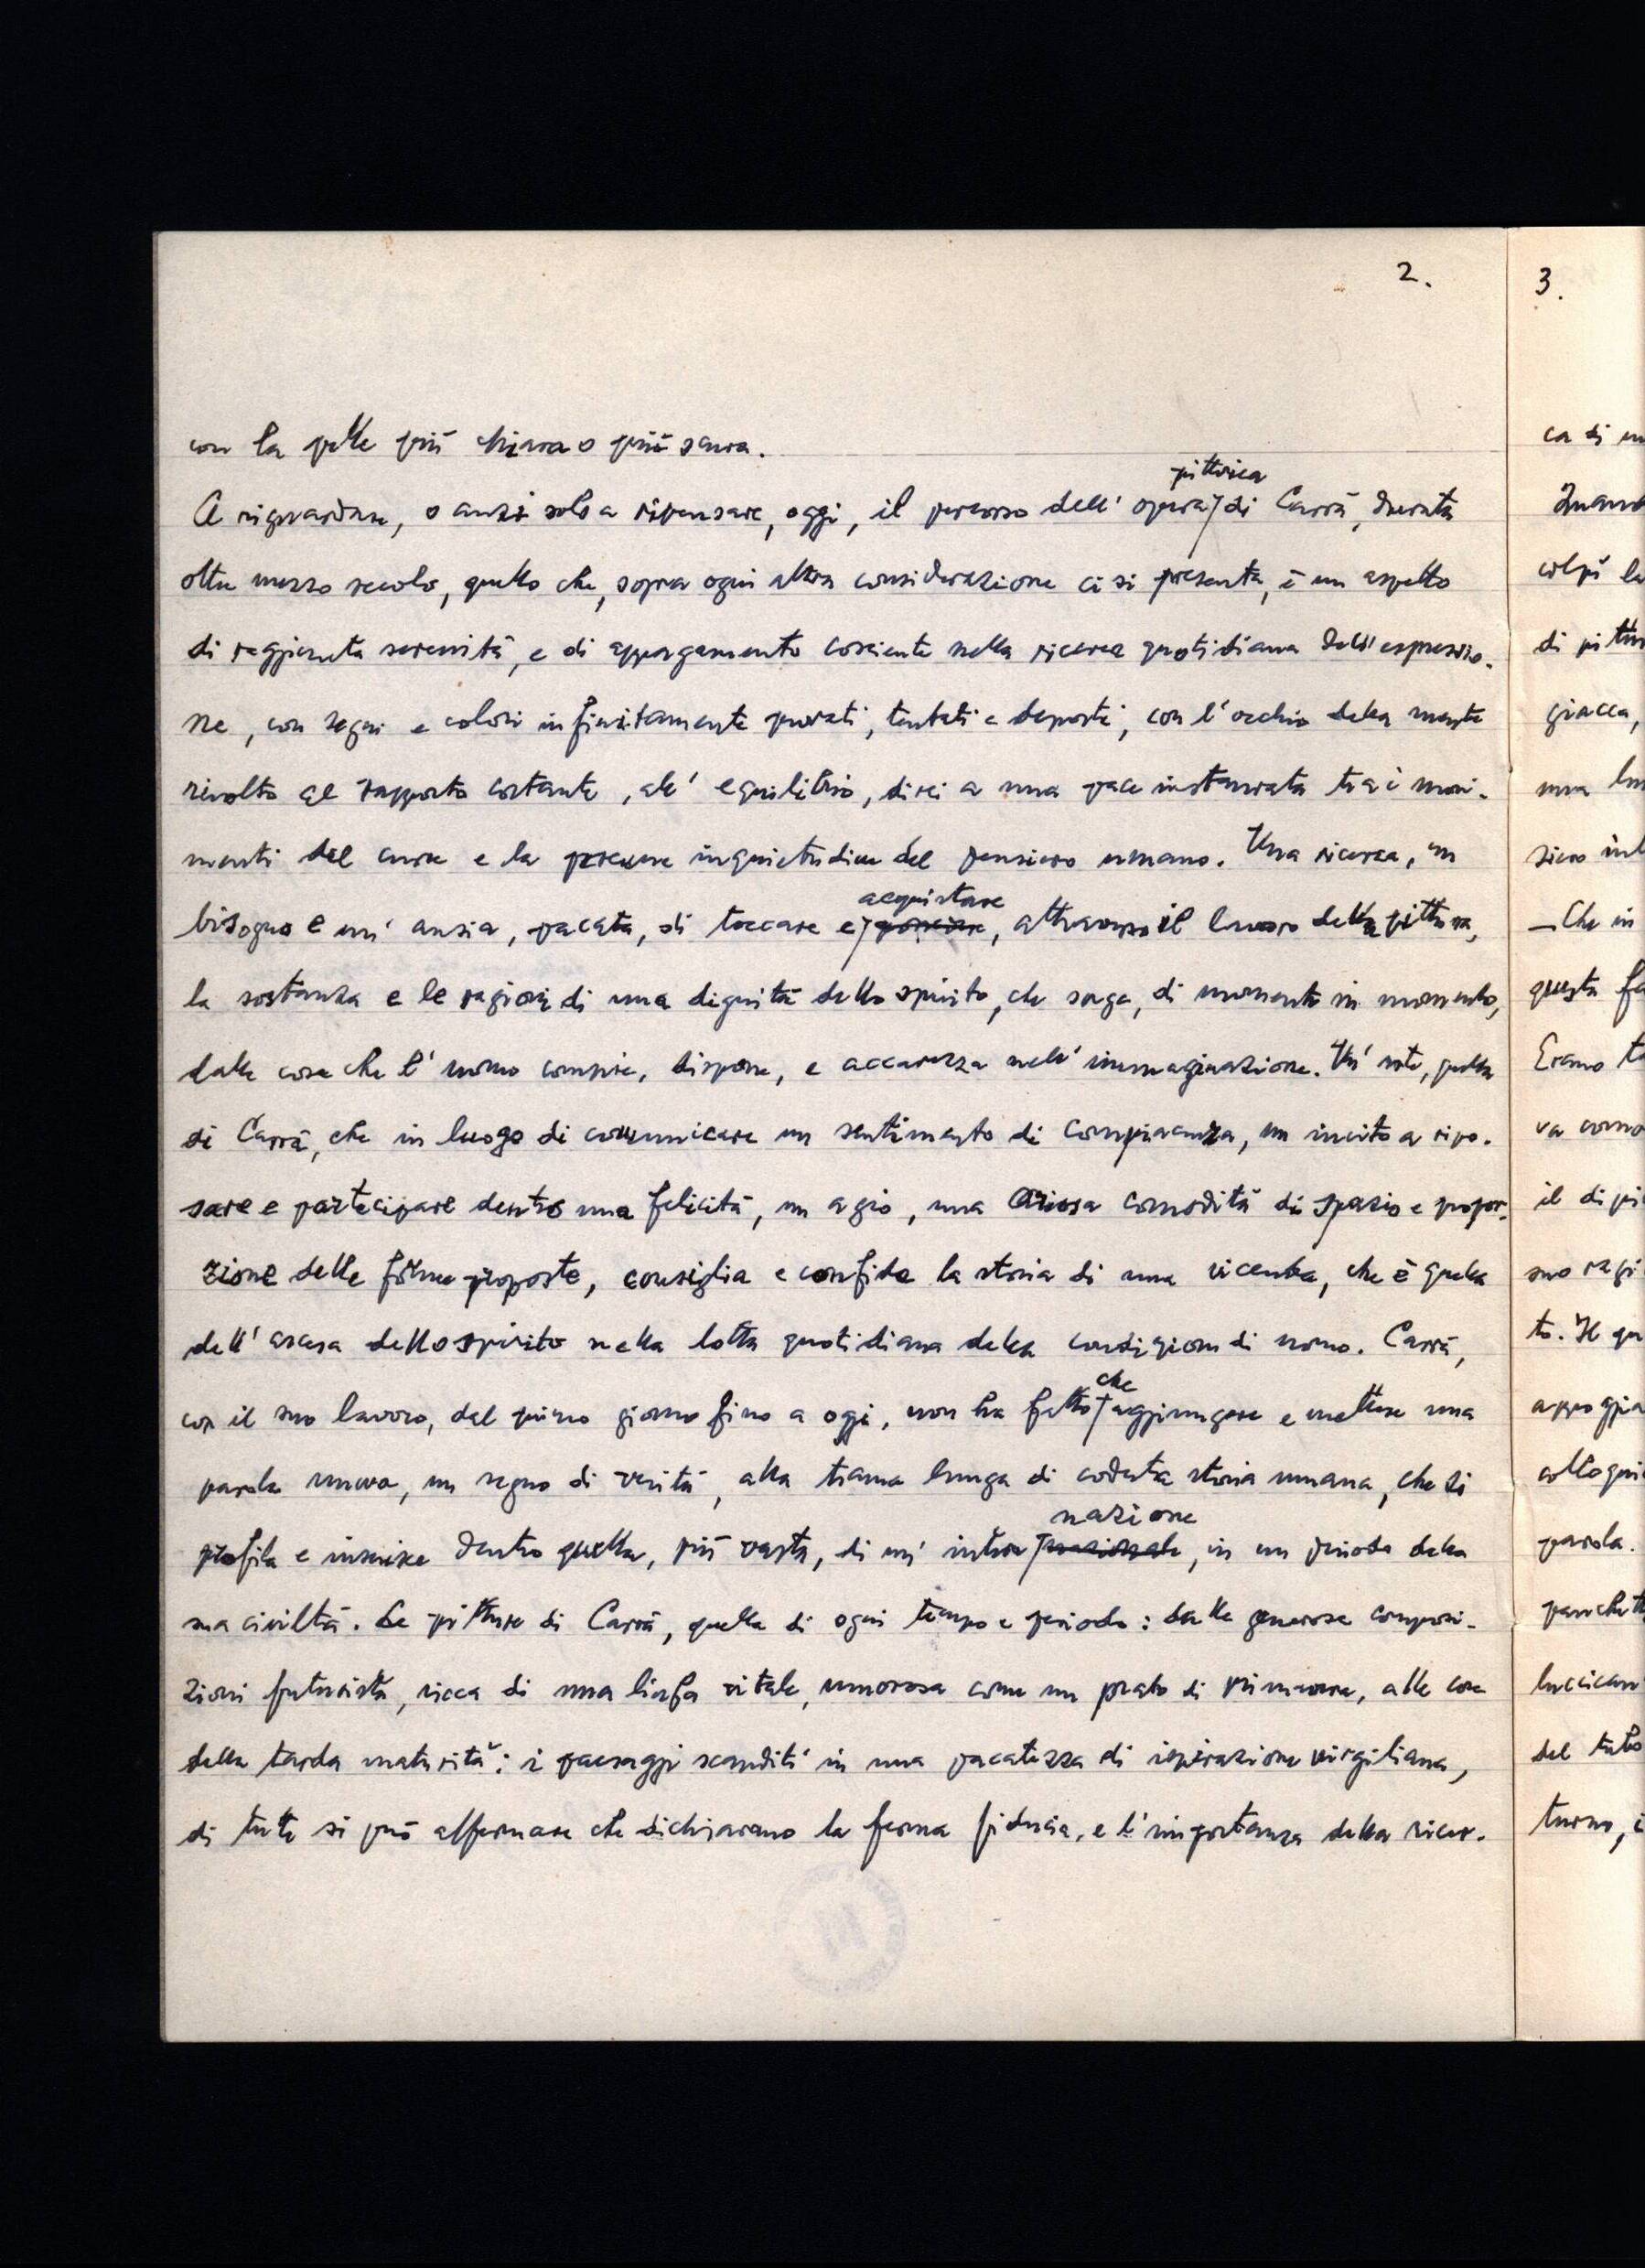 2.
con la pelle più chiara o più scura.
A riguardare, o anzi solo a ripensare, oggi, il percorso dell'opera pittorica di Carrà, durata
oltre mezzo secolo, quello che, sopra ogni altra considerazione ci si presenta, è un aspetto
di raggiunta serenità, e di appagamento cosciente nella ricerca quotidiana dell'espressio-
ne, con segni e colori infinitamente provati, tentati e deposti, con l'occhio della mente
rivolto al rapporto costante, all'equilibrio, direi a una pace instaurata tra i movi-
menti del cuore e la perenne inquietudine del pensiero umano. Una ricerca, un
bisogno e un'ansia, pacata, di toccare e acquistare, attraverso il lavoro della pittura,
la sostanza e le ragioni di una dignità dello spirito, che sorge, di momento in momento,
dalle cose che l'uomo compie, dispone, e accarezza nell'immaginazione. Un'arte, quella
di Carrà, che in luogo di comunicare un sentimento di compiacenza, un invito a ripo-
sare e partecipare dentro una felicità, un agio, una ariosa comodità di spazio e propor-
zione delle forme proposte, consiglia e confida la storia di una vicenda, che è quella
dell'ascesa dello spirito nella lotta quotidiana della condizione di uomo. Carrà,
con il suo lavoro, dal primo giorno fino a oggi, non ha fatto che aggiungere e mettere una
parola nuova, un segno di verità, alla trama lunga di codesta storia umana, che si
profila e inserisce dentro quella, più vasta, di un'intera nazione, in un periodo della
sua civiltà. Le pitture di Carrà, quelle di ogni tempo e periodo: dalle generose composi-
zioni futuriste, ricca di una linfa vitale, umorosa come un prato di primavera, alle cose
della tarda maturità: i paesaggi scanditi in una pacatezza di ispirazione virgiliana,
di tutte si può affermare che dichiarano la ferma fiducia, e l'importanza della ricer-
3.
ca di
colpì la
giacca,
– Che in
questa
Eramo
va
il
suo
to. Il
parola.
del tubo
turno,